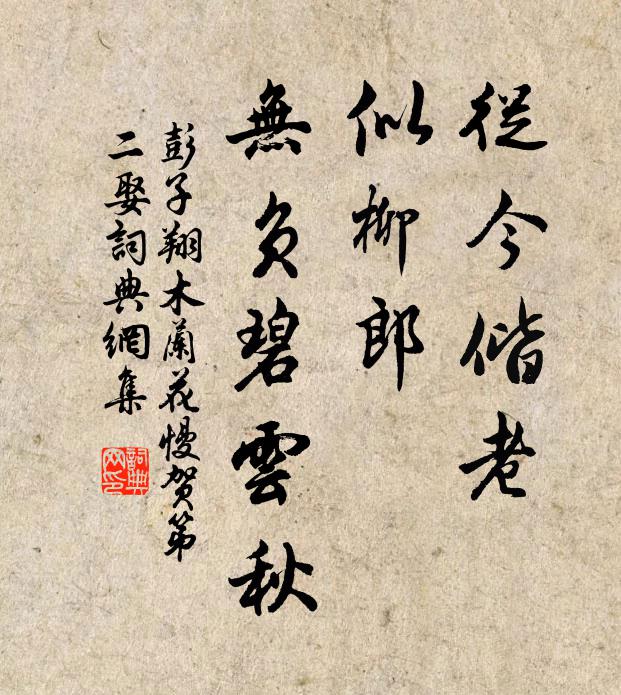 從今偕老
似柳郎
無負碧雲秋
彭子翔木蘭花慢賀第
二娶詞典網集
詞典
网印